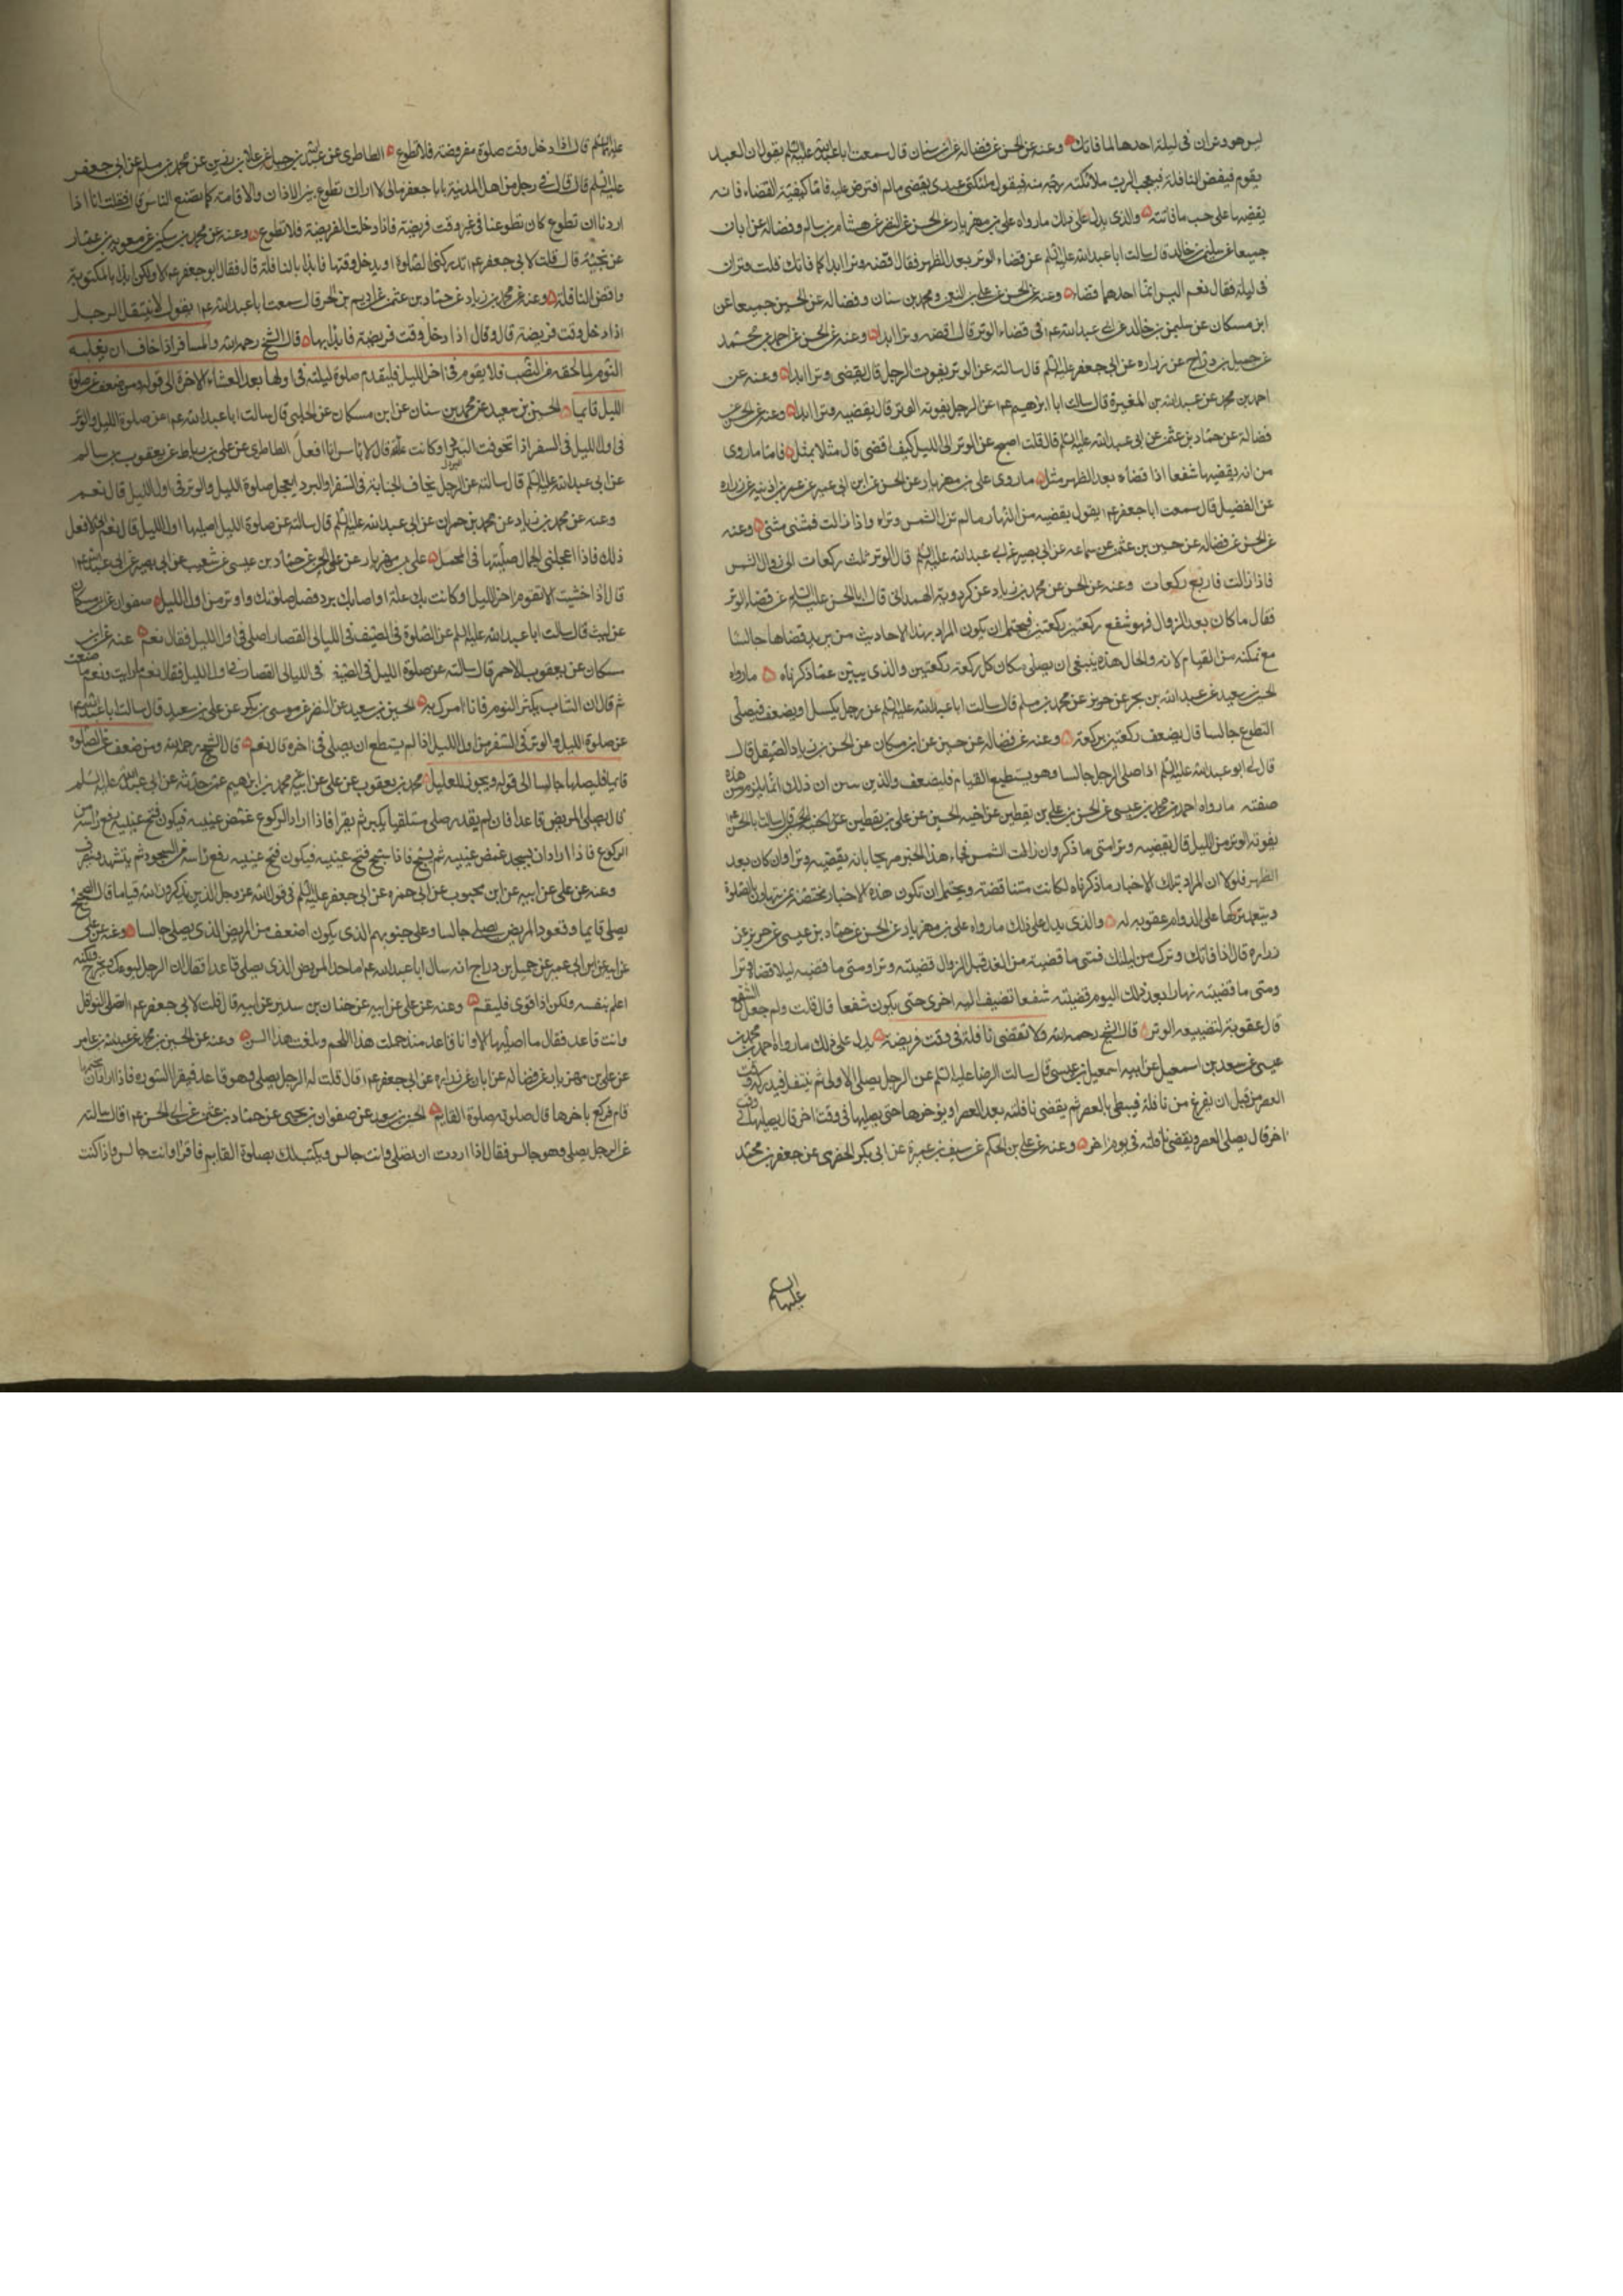 ليس هو وتران فى ليلة احدهما لما فاتك وعنه عن الحسن عن فضالة عن ابن سنان قال سمعت ابا عبدالله عليه السلم يقول ان العبد
يقوم فيقضى النافلة فيعجب الرب ملائكته منه فيقول ملئكتى عبدى يقضى مالم افترض عليه فاما كيفية القضاء فانه
يقضيها على حسب ما فاتته والذى يدل على ذلك مارواه على بن مهزيار عن الحسن عن النضر عن هشام بن سالم وفضالة عن ابان
جميعا عن سليمن بن خالد قال سالت ابا عبدالله عليه السلم عن قضاء الوتر بعد الظهر فقال اقضه وترا ابدا كما فاتك قلت وتران
فى ليلة فقال نعم اليس انما احدهما قضاء وعنه عن الحسن عن على بن النعمن ومحمد بن سنان وفضالة عن الحسين جميعا عن
ابن مسكان عن سليمن بن خالد عن ابى عبدالله عم فى قضاء الوتر قال اقضه وترا ابدا وعنه عن الحسن عن احمد بن محمد
عن جميل بن دراج عن زراره عن ابى جعفر عليه السلم قال سالته عن الوتر يفوت الرجل قال يقضى وترا ابدا وعنه عن
احمد بن محمد عن عبدالله بن المغيرة قال سالت ابا ابرهيم عم عن الرجل يفوته الوتر قال يقضيه وترا ابدا وعنه عن الحسن عن
فضالة عن حماد بن عثمن عن ابى عبدالله عليه السلم قال قلت اصبح عن الوتر الى الليل كيف اقضى قال مثلا بمثل فاما ماروى
من انه يقضيها شفعا اذا قضاه بعد الظهر مثل ماروى على بن مهزيار عن الحسن عن ابن ابى عمير عن عمر بن اذينه عن زراره
عن الفضيل قال سمعت ابا جعفر عم يقول يقضيه من النهار مالم تزل الشمس وترا واذا زالت فمثنى مثنى وعنه
عن الحسن عن فضاله عن حسين بن عثمن عن سماعه عن ابى بصير عن ابى عبدالله عليه السلم قال الوتر ثلث ركعات الى زوال الشمس
فاذا زالت فاربع ركعات وعنه عن الحسن عن محمد بن زياد عن كردويه الهمدانى قال سالت ابا الحسن عليه السلم عن قضاء الوتر
فقال ماكان بعد الزوال فهو شفع ركعتين ركعتين فيحتمل ان يكون المراد بهذا الاحاديث من يريد قضاها جالسا
مع تمكنه من القيام لانه والحال هذه ينبغى ان يصلى مكان كل ركعة ركعتين والذى يبين عما ذكرناه مارواه
الحسين بن سعيد عن عبدالله بن بحر عن حريز عن محمد بن مسلم قال سالت ابا عبدالله عليه السلم عن رجل يكسل ويضعف فيصلى
التطوع جالسا قال يضعف ركعتين بركعة وعنه عن فضاله عن حسين عن ابن مسكان عن الحسن بن زياد الصيقل قال
قال لى ابو عبدالله عليه السلم اذا صلى الرجل جالسا وهو يستطيع القيام فليضعف والذى يبين ان ذلك انما يلزم من هذه
صفته مارواه احمد بن محمد بن عيسى عن الحسن بن على بن يقطين عن اخيه الحسين عن على بن يقطين عن ابى الحسن قال سالت ابا الحسن عم
يفوته الوتر من الليل قال يقضيه وترا متى ماذكر وان زالت الشمس فجاء هذا الخبر صريحا بانه يقضيه وترا وان كان بعد
الظهر فلولا ان المراد بتلك الاخبار ماذكرناه لكانت متناقضة ويحتمل ان تكون هذه الاخبار مختصة بمن يتهاون بالصلوة
ويتعمد تركها على الدوام عقوبه له والذى يدل على ذلك مارواه على بن مهزيار عن الحسن عن حماد بن عيسى عن حريز عن
زراره قال اذا فاتك وترك من ليلتك فمتى ماقضيته من الغد قبل الزوال قضيته وترا ومتى ماقضيته ليلا قضاه وترا
ومتى ماقضيته نهارا بعد ذلك اليوم قضيته شفعا تضيف اليه اخرى حتى يكون شفعا قال قلت ولم جعل الشفع
قال عقوبة لتضييعه الوتر قال الشيخ رحمه الله ولا تقضى نافلة فى وقت فريضة يدل على ذلك مارواه احمد بن محمد بن
عيسى عن سعد بن اسمعيل عن ابيه اسمعيل بن عيسى قال سالت الرضا عليه السلم عن الرجل يصلى الاولى ثم يتنفل فيدركه وقت
العصر من قبل ان يفرغ من نافلة فيبطى بالعصر ثم يقضى نافلته بعد العصر او يؤخرها حتى يصليها فى وقت اخر قال يصليها فى وقت
اخر قال يصلى العصر ويقضى نافلته فى يوم اخر وعنه عن على بن الحكم عن سيف بن عميرة عن ابى بكر الحضرمى عن جعفر بن محمد
عليهما السلم
عليه السلم قال اذا دخل وقت صلوة مفروضة فلا تطوع الطاطرى عن عبدالله بن جبلة عن علا بن رزين عن محمد بن مسلم عن ابى جعفر
عليه السلم قال قال لى رجل من اهل المدينة يابا جعفر مالى لا اراك تطوع بين الاذان والاقامة كما يصنع الناس قال فقلت انا اذا
اردنا ان نتطوع كان تطوعنا فى غير وقت فريضة فاذا دخلت الفريضة فلا تطوع وعنه عن محمد بن سكين عن معوية بن عمار
عن نجية قال قلت لابى جعفر عم تدركنى الصلوة او يدخل وقتها فابدا بالنافلة قال فقال ابو جعفر عم لا ولكن ابدا بالمكتوبة
واقض النافلة وعنه عن محمد بن زياد عن حماد بن عثمن عن اديم بن الحر قال سمعت ابا عبدالله عم يقول لا يتنفل الرجل
اذا دخل وقت فريضة قال وقال اذا دخل وقت فريضة فابدا بها قال الشيخ رحمه الله والمسافر اذا خاف ان يغلبه
النوم لما لحقه من التعب فلا يقوم فى اخر الليل فليقدم صلوة ليلته فى اولها بعد العشاء الاخرة الى قوله ومن ضعف عن صلوة
الليل قائما الحسين بن سعيد عن محمد بن سنان عن ابن مسكان عن الحلبى قال سالت ابا عبدالله عم عن صلوة الليل والوتر
فى اول الليل فى السفر اذا تخوفت البرد او كانت علة قال لا باس انا افعل الطاطرى عن على بن رباط عن يعقوب بن سالم
عن ابى عبدالله عليه السلم قال سالته عن الرجل يخاف الجنابة فى السفر او البرد ايعجل صلوة الليل والوتر فى اول الليل قال نعم
وعنه عن محمد بن زياد عن محمد بن حمران عن ابى عبدالله عليه السلم قال سالته عن صلوة الليل اصليها اول الليل قال نعم انى لافعل
ذلك فاذا اعجلنى الجمال صليتها فى المحمل على بن مهزيار عن الحسن عن حماد بن عيسى عن شعيب عن ابى بصير عن ابى عبدالله عم
قال اذا خشيت الا تقوم اخر الليل او كانت بك علة او اصابك برد فصل صلوتك واوتر من اول الليل صفوان عن ابن مسكان
عن ليث قال سالت ابا عبدالله عليه السلم عن الصلوة فى الصيف فى الليالى القصار اصلى فى اول الليل فقال نعم عنه عن ابن
مسكان عن يعقوب الاحمر قال سالته عن صلوة الليل فى الصيف فى الليالى القصار فى اول الليل فقال نعم مارايت ونعم ما صنعت
ثم قال ان الشاب يكثر النوم فانا امرك به الحسين بن سعيد عن النضر عن موسى بن بكر عن على بن سعيد قال سالت ابا عبدالله عم
عن صلوة الليل والوتر فى السفر من اول الليل اذا لم يستطع ان يصلى فى اخره قال نعم قال الشيخ رحمه الله ومن ضعف عن الصلوة
قائما فليصلها جالسا الى قوله ويجوز للعليل محمد بن يعقوب عن على عن ابيه عن محمد بن ابراهيم عمن حدثه عن ابى عبدالله عليه السلم
قال يصلى المريض قاعدا فان لم يقدر صلى مستلقيا يكبر ثم يقرا فاذا اراد الركوع غمض عينيه فيكون فتح عينيه رفع راسه من
الركوع فاذا اراد ان يسجد غمض عينيه ثم يسبح فاذا سبح فتح عينيه فيكون فتح عينيه رفع راسه من السجود ثم يتشهد وينصرف
وعنه عن على عن ابيه عن ابن محبوب عن ابى حمزه عن ابى جعفر عليه السلم فى قول الله عز وجل الذين يذكرون الله قياما قال الصحيح
يصلى قائما وقعودا المريض يصلى جالسا وعلى جنوبهم الذى يكون اضعف من المريض الذى يصلى جالسا وعنه عن على
عن ابيه عن ابن ابى عمير عن جميل بن دراج انه سال ابا عبدالله عم ماحد المريض الذى يصلى قاعدا فقال ان الرجل ليوعك ويحرج ولكنه
اعلم بنفسه ولكن اذا قوى فليقم وعنه عن على عن ابيه عن حنان بن سدير عن ابيه قال قلت لابى جعفر عم اتصلى النوافل
وانت قاعد فقال ما اصليها الا وانا قاعد منذ حملت هذا اللحم وبلغت هذا السن وعنه عن الحسين بن محمد عن عبدالله بن عامر
عن على بن مهزيار عن فضاله عن ابان عن زراره عن ابى جعفر عم قال قلت له الرجل يصلى وهو قاعد فيقرا السوره فاذا اراد ان يختمها
قام فركع باخرها قال صلوته صلوة القايم الحسين بن سعيد عن صفوان بن يحيى عن حماد بن عثمن عن ابى الحسن عم قال سالته
عن الرجل يصلى وهو جالس فقال اذا اردت ان تصلى وانت جالس ويكتب لك بصلوة القايم فاقرا وانت جالس واذا كنت